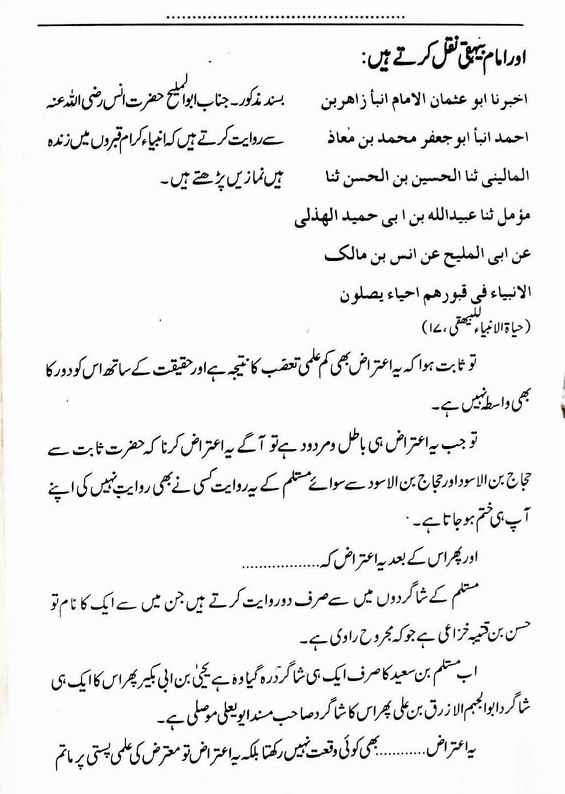 اور امام بیہقی نقل کرتے ہیں:
اخبرنا ابو عثمان الامام انبأ زاهر بن
احمد انبأ ابو جعفر محمد بن معاذ
المالینی ثنا الحسین بن الحسن ثنا
مؤمل ثنا عبیدالله بن ابی حمید الهذلی
عن ابی الملیح عن انس بن مالک
الانبیاء فی قبورهم احیاء یصلون
(حیاۃ الانبیاء للبیھقی ،۱۷)
بسند مذکور۔ جناب ابوالملیح حضرت انس رضی اللہ عنہ
سے روایت کرتے ہیں کہ انبیاء کرام قبروں میں زندہ
ہیں نمازیں پڑھتے ہیں۔
تو ثابت ہوا کہ یہ اعتراض بھی کم علمی تعصّب کا نتیجہ ہے اور حقیقت کے ساتھ اس کو دور کا
بھی واسطہ نہیں ہے۔
تو جب یہ اعتراض ہی باطل و مردود ہے تو آگے یہ اعتراض کرنا کہ حضرت ثابت سے
حجاج بن الاسود اور حجاج بن الاسود سے سوائے مستلم کے یہ روایت کسی نے بھی روایت نہیں کی اپنے
آپ ہی ختم ہو جاتا ہے۔
اور پھر اس کے بعد یہ اعتراض کہ...................
مستلم کے شاگردوں میں سے صرف دو روایت کرتے ہیں جن میں سے ایک کا نام تو
حسن بن قتیبہ خزاعی ہے جو کہ مجروح راوی ہے۔
اب مستلم بن سعید کا صرف ایک ہی شاگرد رہ گیا وہ ہے یحییٰ بن ابی بکیر پھر اس کا ایک ہی
شاگرد ابوالجہم الازرق بن علی پھر اس کا شاگرد صاحب مسند ابو یعلی موصلی ہے۔
یہ اعتراض...........بھی کوئی وقعت نہیں رکھتا بلکہ یہ اعتراض تو معترض کی علمی پستی پر ماتم